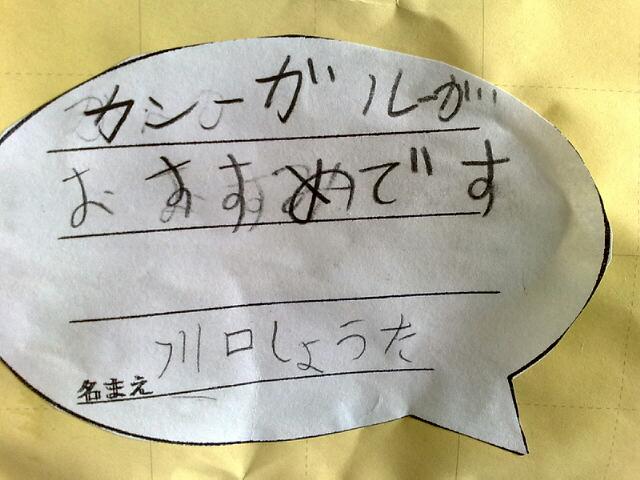 カシーガルーが
おすすめです
川口しょうた
名まえ